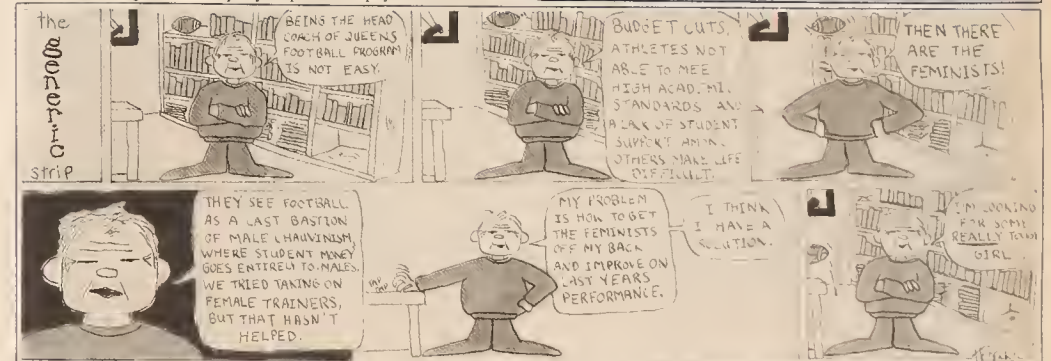 the
generic
strip
BEING THE HEAD
COACH OF QUEENS
FOOTBALL PROGRAM
IS NOT EASY.
BUDGET CUTS,
ATHLETES NOT
ABLE TO MEE
HIGH ACADEMI
STANDARDS AN
A LACK OF STUDENT
SUPPORT AMON
OTHERS MAKE LIFE
DIFFICULT.
THEN THERE
ARE THE
FEMINISTS!
THEY SEE FOOTBALL
AS A LAST BASTION
OF MALE CHAUVINISM,
WHERE STUDENT MONEY
GOES ENTIRELY TO MALES.
WE TRIED TAKING ON
FEMALE TRAINERS,
BUT THAT HASN'T
HELPED.
TAP
TAP
MY PROBLEM
IS HOW TO GET
THE FEMINISTS
OFF MY BACK
AND IMPROVE ON
LAST YEARS
PERFORMANCE.
I THINK
I HAVE A
SOLUTION.
I'M LOOKING
FOR SOME
REALLY TOUGH
GIRL